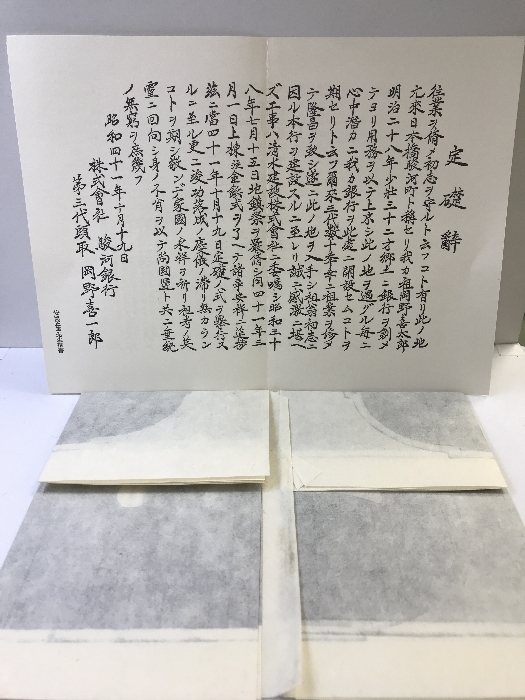 定礎辭
往業ヲ脩メ初志ヲ守ルト云フコト有リ此ノ地
元來日本橋駿河町ト稱セリ我カ祖岡野喜太郎
明治二十八年少壯三十二才郷ニ銀行ヲ創メ
テヨリ用務ヲ以テ上京シ此ノ地ヲ過グル毎ニ
心中潛カニ我カ銀行ヲ此處ニ開設セムコトヲ
期セリト云フ爾來三代數十年幸ニ祖業ヲ修メ
テ隆昌ヲ致シ遂ニ此ノ地ヲ入手シ祖翁初志ニ
因ル本行ヲ建設スルニ至レリ誠ニ感激ニ堪ヘ
ズ工事ハ清水建設株式會社ニ委嘱シ昭和三十
八年七月十五日地鎮祭ヲ嚴修シ同四十一年三
月一日上棟鋲金鋲式ヲ了ヘテ諸事安祥ニ進捗
茲ニ當四十一年十月十九日定礎ノ式ヲ擧行ス
ルニ至ル更ニ竣功落成ノ慶儀ノ滞リ無カラン
コトヲ期シ敬ンデ家國ノ永祥ヲ祈リ祖考ノ英
靈ニ回向シ身ノ不肖ヲ以テ尚国豎ト共ニ垂統
ノ無窮ヲ庶幾フ
昭和四十一年十月十九日
株式會社 駿河銀行
第三代頭取 岡野喜一郎